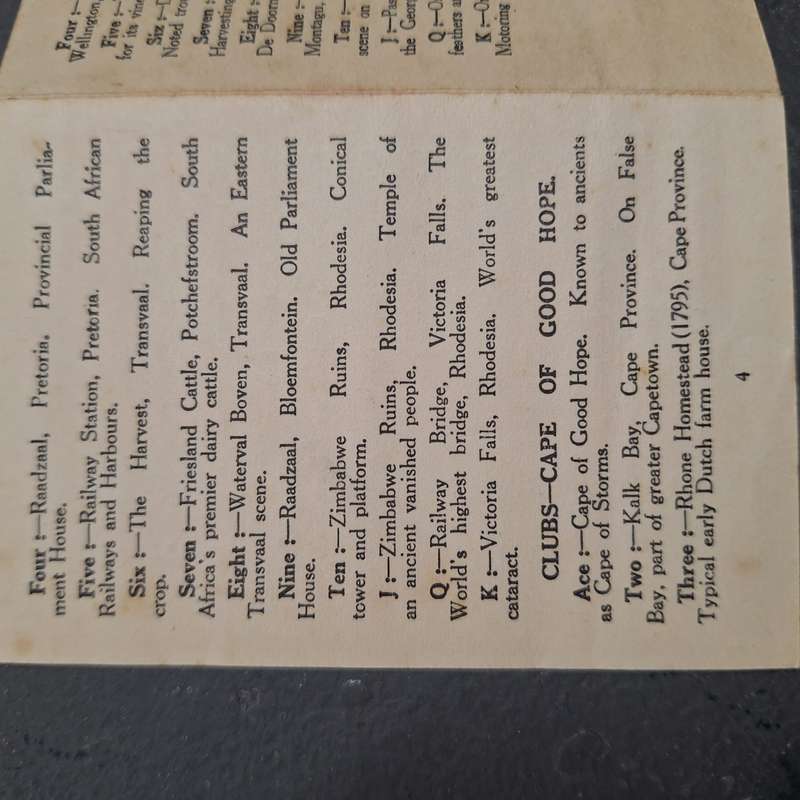 Four :—Raadzaal, Pretoria, Provincial Parlia-
ment House.
Five :—Railway Station, Pretoria. South African
Railways and Harbours.
Six :—The Harvest, Transvaal. Reaping the
crop.
Seven :—Friesland Cattle, Potchefstroom. South
Africa's premier dairy cattle.
Eight :—Waterval Boven, Transvaal. An Eastern
Transvaal scene.
Nine :—Raadzaal, Bloemfontein. Old Parliament
House.
Ten :—Zimbabwe Ruins, Rhodesia. Conical
tower and platform.
J :—Zimbabwe Ruins, Rhodesia. Temple of
an ancient vanished people.
Q :—Railway Bridge, Victoria Falls. The
World's highest bridge, Rhodesia.
K :—Victoria Falls, Rhodesia. World's greatest
cataract.
CLUBS—CAPE OF GOOD HOPE.
Ace :—Cape of Good Hope. Known to ancients
as Cape of Storms.
Two :—Kalk Bay, Cape Province. On False
Bay, part of greater Capetown.
Three :—Rhone Homestead (1795), Cape Province.
Typical early Dutch farm house.
4
Four :—
Wellington,
Five :—
for its vine
Six :—
Noted
Seven :
Harvesting
Eight :
De Doorn
Nine :—
Montagu,
Ten :—
scene on
J :—
the
Q :—
feathers
K :—
Motoring